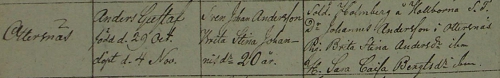 Ottersnäs
Anders Gustaf
född d. 29 Oct.
döpt d. 4 Nov.
Sven Johan Andersson
Brita Stina Johan-
nisdr 20 år.
Sold. Holmberg å Hallborna S. F.
Dr. Johannes Andersson i Ottersnäs
Pig. Brita Stina Andersdr ibm
H. Sara Caisa Bengtsdr ibm.